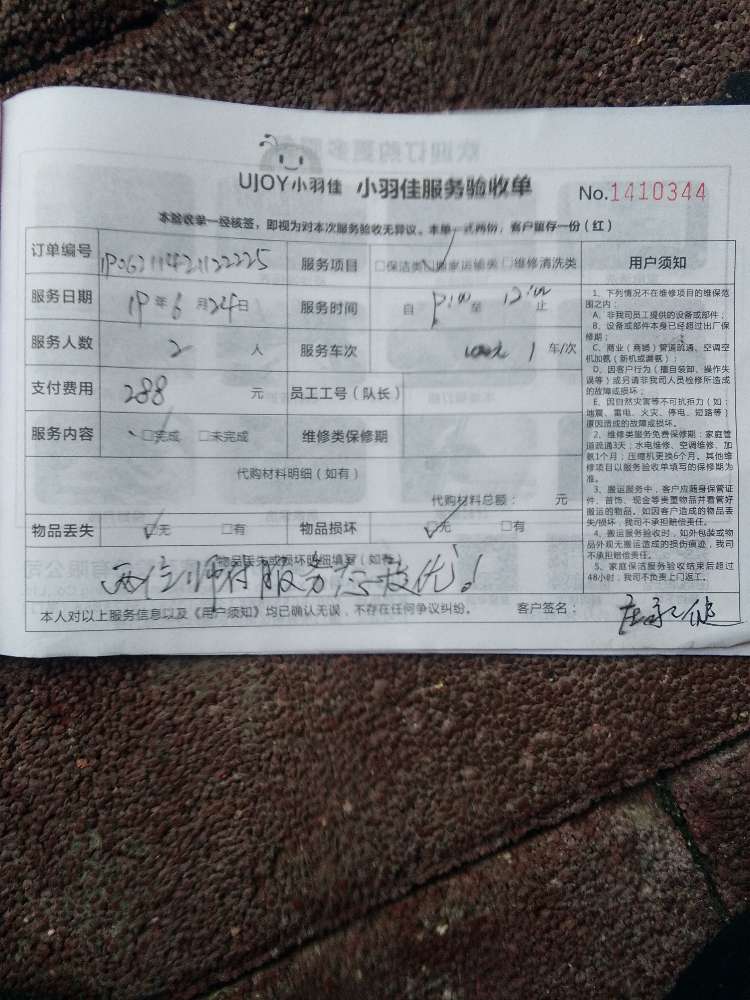 UJOY小羽佳 小羽佳服务验收单 No.1410344
本验收单一经核签，即视为对本次服务验收无异议。本单一式两份，客户留存一份（红）
订单编号 服务项目 □保洁类 □搬家运输类 □维修清洗类 用户须知
服务日期 19年6月24日 服务时间 自 至 12:00 止
服务人数 2人 服务车次 1车/次
支付费用 288元 员工工号（队长）
服务内容 □完成 □未完成 维修类保修期
代购材料明细（如有）
代购材料总额： 元
物品丢失 ☑无 □有 物品损坏 ☑无 □有
物品丢失或损坏明细填写（如有）
两位师付服务态度优！
本人对以上服务信息以及《用户须知》均已确认无误，不存在任何争议纠纷。 客户签名：
1、下列情况不在维修项目的维保范
围之内：
A、非我司员工提供的设备或部件；
B、设备或部件本身已经超过出厂保
修期；
C、商业（商铺）管道疏通、空调空
机加氨（新机或漏氨）；
D、因客户行为（擅自装卸、操作失
误等）或另请非我司人员检修所造成
的故障或损坏；
E、因自然灾害等不可抗拒力（如：
地震、雷电、火灾、停电、短路等）
原因造成的故障或损坏。
2、维修类服务免费保修期：家庭管
道疏通3天；水电维修、空调维修、加
氨1个月；压缩机更换6个月。其他维
修项目以服务验收单填写的保修期为
准。
3、搬运服务中，客户应随身保管证
件、首饰、现金等贵重物品并看管好
搬运的物品。如因客户造成的物品丢
失/损坏，我司不承担赔偿责任。
4、搬运服务验收时，如外包装或物
品外观无搬运造成的损伤痕迹，我司
不承担赔偿责任。
5、家庭保洁服务结束后超过
48小时，我司不负责上门返工。